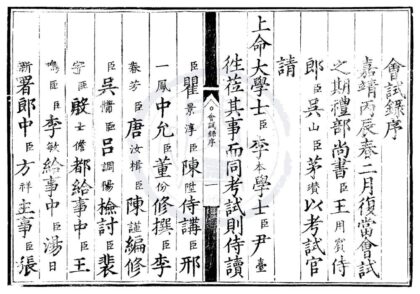 會試錄序
嘉靖丙辰春二月復當會試
之期禮部尚書臣王用賓侍
郎臣吳山臣茅瓚以考試官
請
上命大學士臣李本學士臣尹臺
往莅其事而同考試則侍讀
會試錄序
一
臣瞿景淳臣陳陞侍講臣邢
一鳳中允臣董份修撰臣李
春芳臣唐汝楫臣陳謹編修
臣吳情臣呂調陽檢討臣裴
宇臣殷士儋都給事中臣王
鳴臣臣李敏給事中臣湯日
新署郎中臣方祥主事臣張